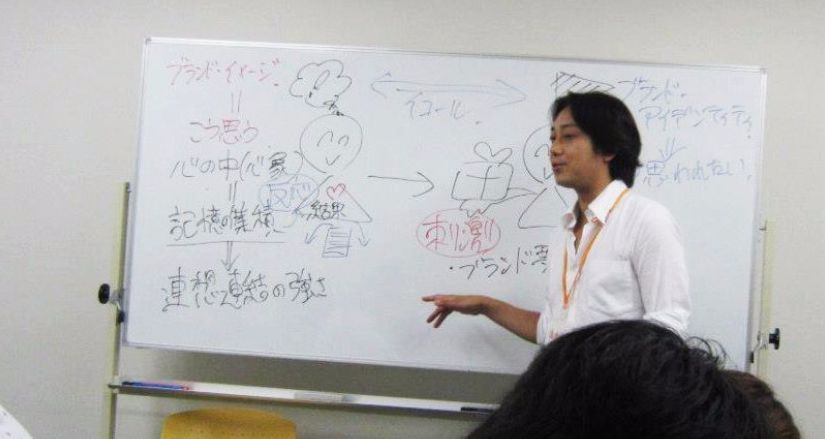 ブランド・イメージ
＝
こう思う
心の中(心象)
＝
記憶の集積
連想連結の強さ
反応
結果
イコール
刺激
・ブランド要
ブランド・
アイデンティティ
思われたい